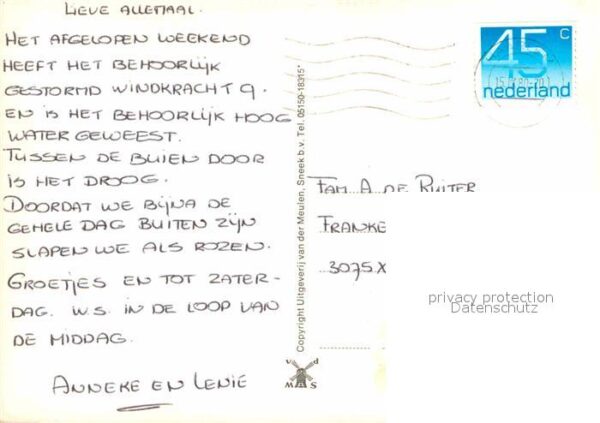 LIEVE ALLEMAAL.
HET AFGELOPEN WEEKEND
HEEFT HET BEHOORLIJK
GESTORMD WINDKRACHT 9.
EN IS HET BEHOORLIJK HOOG
WATER GEWEEST.
TUSSEN DE BUIEN DOOR
IS HET DROOG.
DOORDAT WE BIJNA DE
GEHELE DAG BUITEN ZIJN
SLAPEN WE ALS ROZEN.
GROETJES EN TOT ZATER-
DAG. W.S. IN DE LOOP VAN
DE MIDDAG.
ANNEKE EN LENIE
Copyright Uitgeverij van der Meulen, Sneek b.v. Tel. 05150-18315*
v d
M S
45 c
nederland
FAM A. DE RUITER
FRANKE
3075 X
privacy protection
Datenschutz